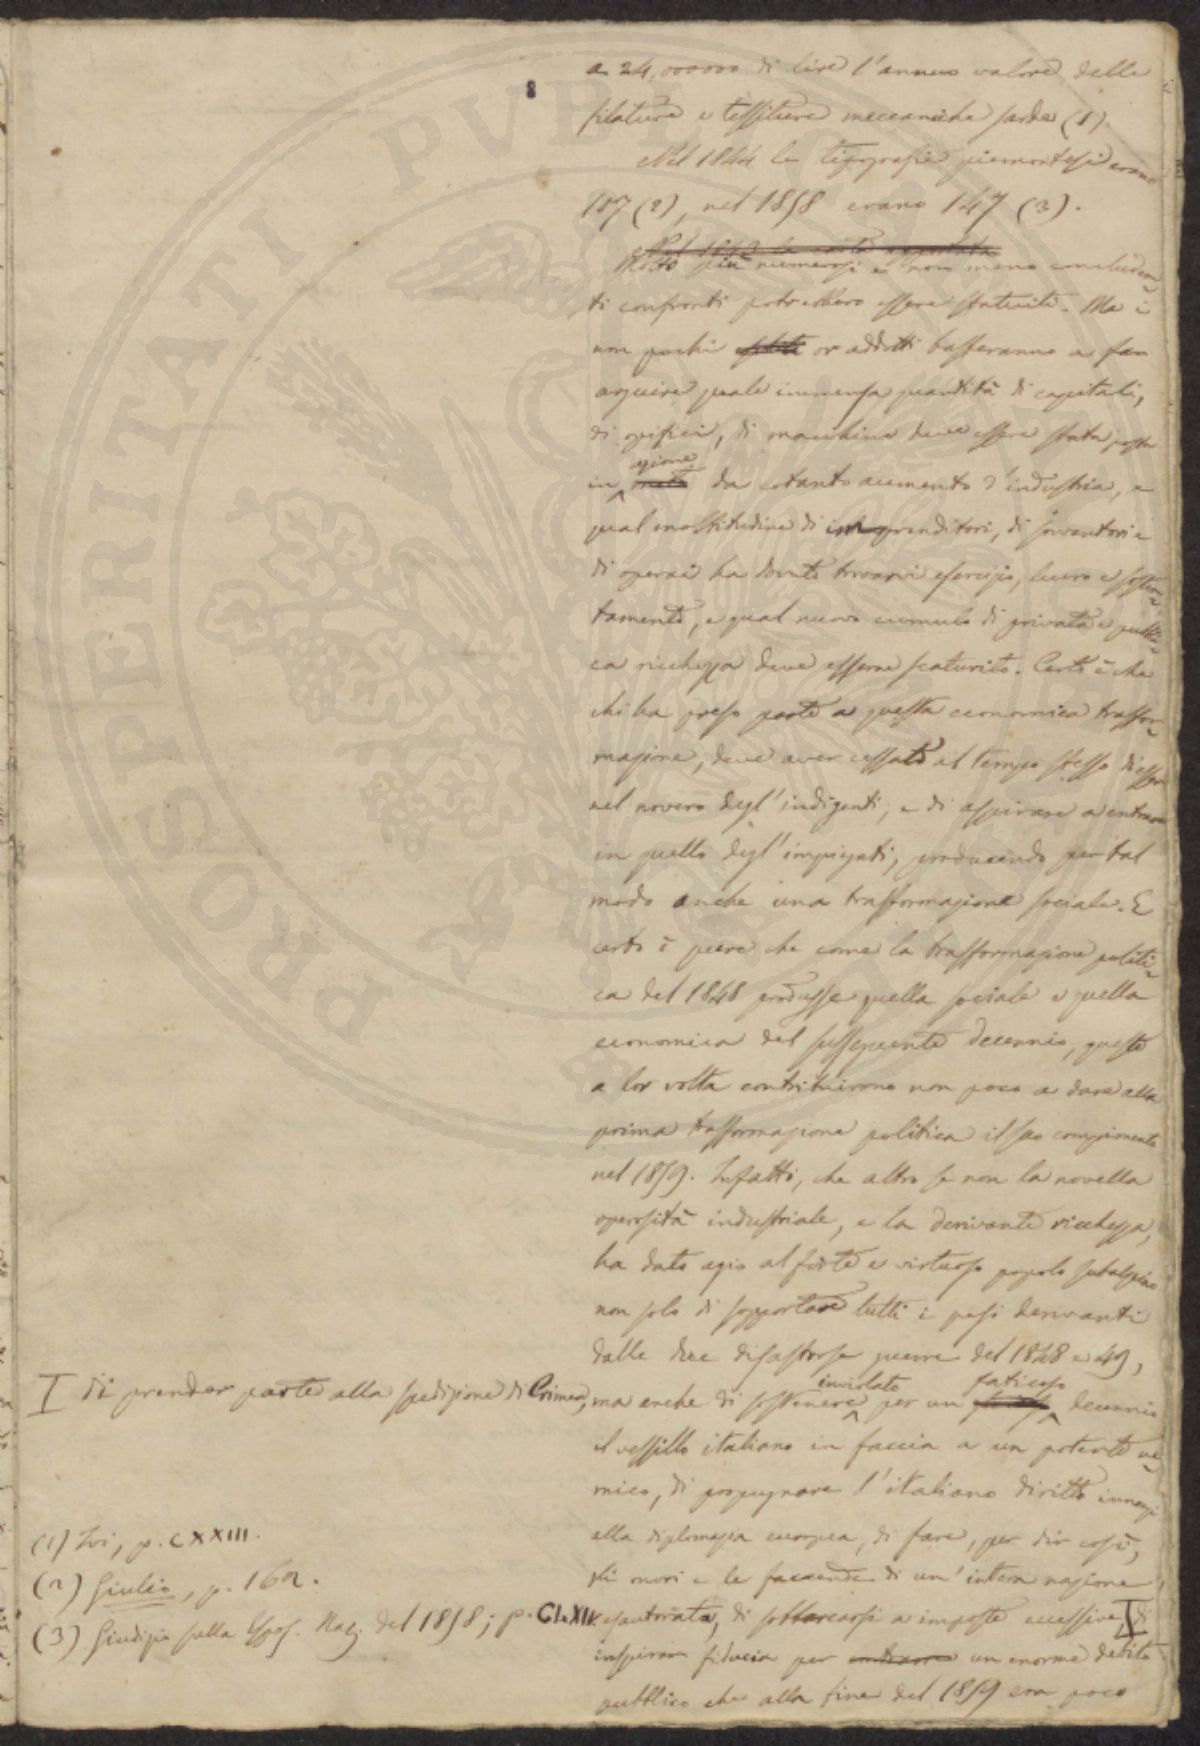 a 24,000000 di lire l'annuo valore delle
filature e tessiture meccaniche sarde (1).
Nel 1844 le tipografie piemontesi erano
107 (2), nel 1858 erano 147 (3).
Nel 1843 la carta
Molto più numerosi e non meno concluden=
ti confronti potrebbero essere istituiti. Ma i
non pochi or addotti basteranno a fare
arguire quale immensa quantità di capitali,
di opifici, di macchine deve essere stata posta
azione
in moto da cotanto aumento d'industria, e
qual moltitudine di imprenditori, di inventori e
di operai ha dovuto trovarvi esercizio, lucro e sosten=
tamento, e qual nuovo cumulo di privata e pubbli=
ca ricchezza deve esserne scaturito. Certo è che
chi ha preso parte a questa economica trasfor=
mazione, deve aver cessato al tempo stesso di esser
nel novero degl'indigenti, e di aspirare a entrare
in quello degl'impiegati, producendo per tal
modo anche una trasformazione sociale. E
certo è pure che come la trasformazione politi=
ca del 1848 produsse quella sociale e quella
economica del susseguente decennio, queste
a lor volta contribuirono non poco a dare alla
prima trasformazione politica il suo compimento
nel 1859. Infatti, che altro se non la novella
operosità industriale, e la derivante ricchezza,
ha dato agio al forte e virtuoso popolo subalpino
non solo di sopportare tutti i pesi derivanti
dalle due disastrose guerre del 1848 e 49,
inviolato faticoso
ma anche di sostenere per un decennio
il vessillo italiano in faccia a un potente ne=
mico, di propugnare l'italiano diritto innanzi
alla diplomazia europea, di fare, per dir così,
gli onori e le faccende di un'intera nazione
esautorata, di sobbarcarsi a imposte eccessive, I di
inspirar fiducia per un enorme debito
pubblico che alla fine del 1859 era poco
I di prender parte alla spedizione di Crimea,
(1) Ivi, p. CXXIII.
(2) Giulio, p. 162.
(3) Giudizio sulla Espos. Naz. del 1858; p. CLXIV
PROSPERITATI PVBLICAE